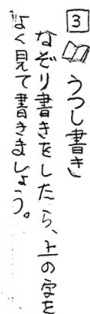 3 うつし書き
なぞり書きをしたら、上の字を
よく見て書きましょう。